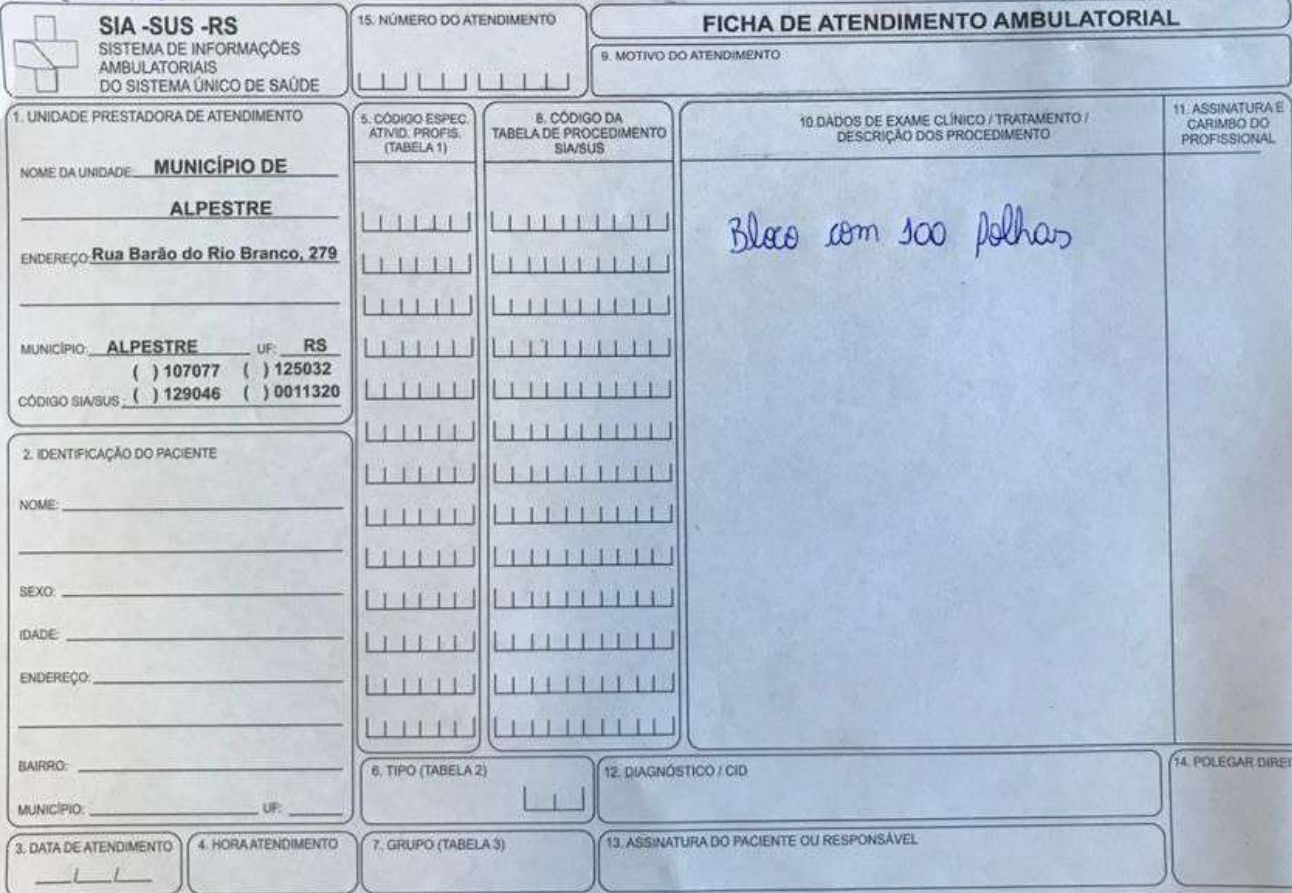 SIA -SUS -RS
SISTEMA DE INFORMAÇÕES
AMBULATORIAIS
DO SISTEMA ÚNICO DE SAÚDE
15. NÚMERO DO ATENDIMENTO
FICHA DE ATENDIMENTO AMBULATORIAL
9. MOTIVO DO ATENDIMENTO
1. UNIDADE PRESTADORA DE ATENDIMENTO
NOME DA UNIDADE: MUNICÍPIO DE
ALPESTRE
ENDEREÇO: Rua Barão do Rio Branco, 279
MUNICÍPIO: ALPESTRE UF: RS
( ) 107077 ( ) 125032
CÓDIGO SIA/SUS : ( ) 129046 ( ) 0011320
2. IDENTIFICAÇÃO DO PACIENTE
NOME:
SEXO:
IDADE:
ENDEREÇO:
BAIRRO:
MUNICÍPIO: UF:
3. DATA DE ATENDIMENTO
4. HORA ATENDIMENTO
5. CÓDIGO ESPEC.
ATIVID. PROFIS.
(TABELA 1)
8. CÓDIGO DA
TABELA DE PROCEDIMENTO
SIA/SUS
10.DADOS DE EXAME CLÍNICO / TRATAMENTO /
DESCRIÇÃO DOS PROCEDIMENTO
Bloco com 100 folhas
11. ASSINATURA E
CARIMBO DO
PROFISSIONAL
6. TIPO (TABELA 2)
12. DIAGNÓSTICO / CID
14. POLEGAR DIREI
7. GRUPO (TABELA 3)
13. ASSINATURA DO PACIENTE OU RESPONSÁVEL